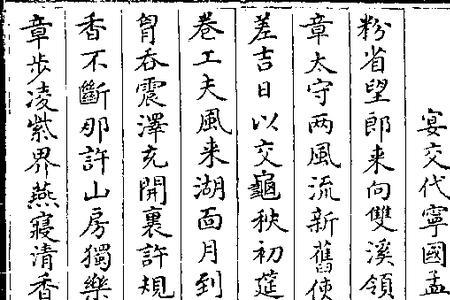 宴交代寧國孟
粉省望郎来向雙溪領
章太守两風流新舊使
差吉日以交龜秧初莚
巻工夫風来湖面月到
胷吞震澤充開裏許規
香不斷那許山房獨樂
章歩凌紫界燕寢清香